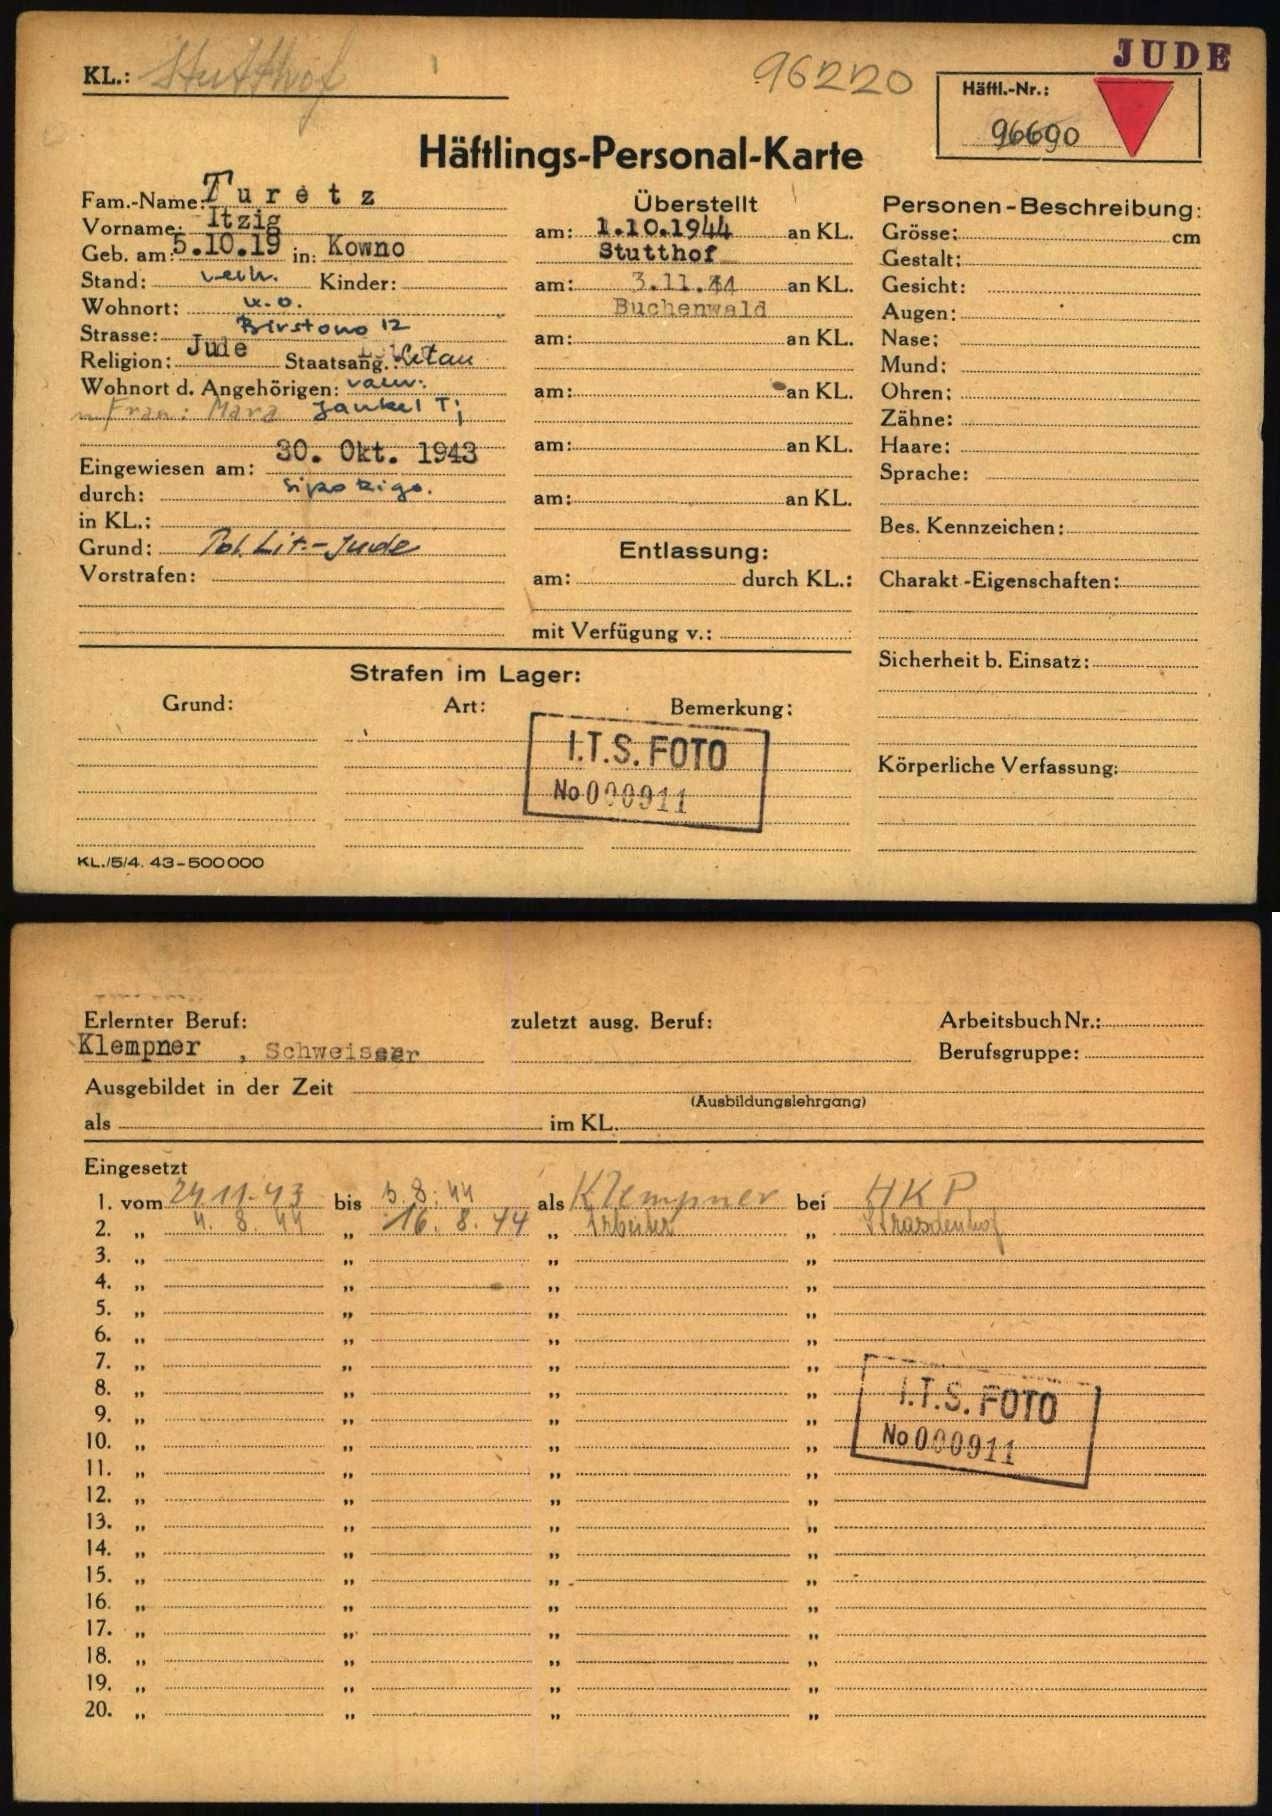 KL.: Stutthof
96220
JUDE
Häftl.-Nr.:
96690
Häftlings-Personal-Karte
Fam.-Name: Turetz
Vorname: Itzig
Geb. am: 5.10.19 in: Kowno
Stand: verh. Kinder:
Wohnort: w.o.
Strasse: Birstono 12
Religion: Jude Staatsang.: Litau
Wohnort d. Angehörigen:
Frau: Mara Jankel T;
30. Okt. 1943
Eingewiesen am:
durch: Sipo Riga.
in KL.:
Grund: Pol. Lit.-Jude
Vorstrafen:
Überstellt
am: 1.10.1944 an KL.
Stutthof
am: 3.11.44 an KL.
Buchenwald
am: an KL.
am: an KL.
am: an KL.
am: an KL.
Entlassung:
am: durch KL.:
mit Verfügung v.:
Personen-Beschreibung:
Grösse: cm
Gestalt:
Gesicht:
Augen:
Nase:
Mund:
Ohren:
Zähne:
Haare:
Sprache:
Bes. Kennzeichen:
Charakt.-Eigenschaften:
Sicherheit b. Einsatz:
Körperliche Verfassung:
Strafen im Lager:
Grund: Art: Bemerkung:
I.T.S. FOTO
No 000911
KL./5/4. 43-500000
Erlernter Beruf: zuletzt ausg. Beruf: Arbeitsbuch Nr.:
Klempner , Schweisser Berufsgruppe:
Ausgebildet in der Zeit
(Ausbildungslehrgang)
als im KL.
Eingesetzt
1. vom 24.11.43 bis 3.8.44 als Klempner bei HKP
2. „ 4. 8. 44 „ 16. 8. 44 „ Arbeiter „ Strasdenhof
3. „ „ „ „
4. „ „ „ „
5. „ „ „ „
6. „ „ „ „
7. „ „ „ „
8. „ „ „ „
9. „ „ „ „
10. „ „ „ „
11. „ „ „ „
12. „ „ „ „
13. „ „ „ „
14. „ „ „ „
15. „ „ „ „
16. „ „ „ „
17. „ „ „ „
18. „ „ „ „
19. „ „ „ „
20. „ „ „ „
I.T.S. FOTO
No 000911